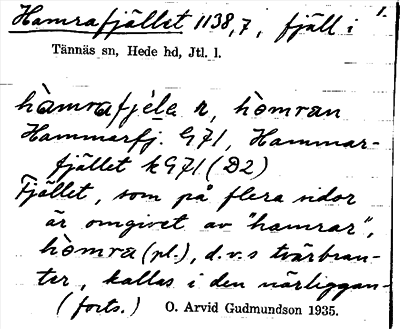 Hamrafjället 1138,7, fjäll i 1.
Tännäs sn, Hede hd, Jtl. l.
hàmrafjęlę n, hòmran
Hammarfj. G71, Hammar-
fjället k G71 (D2)
Fjället, som på flera sidor
är omgivet av "hamrar",
hòmra (pl.), d.v.s tvärbran-
ter, kallas i den närliggan-
(forts.) O. Arvid Gudmundson 1935.